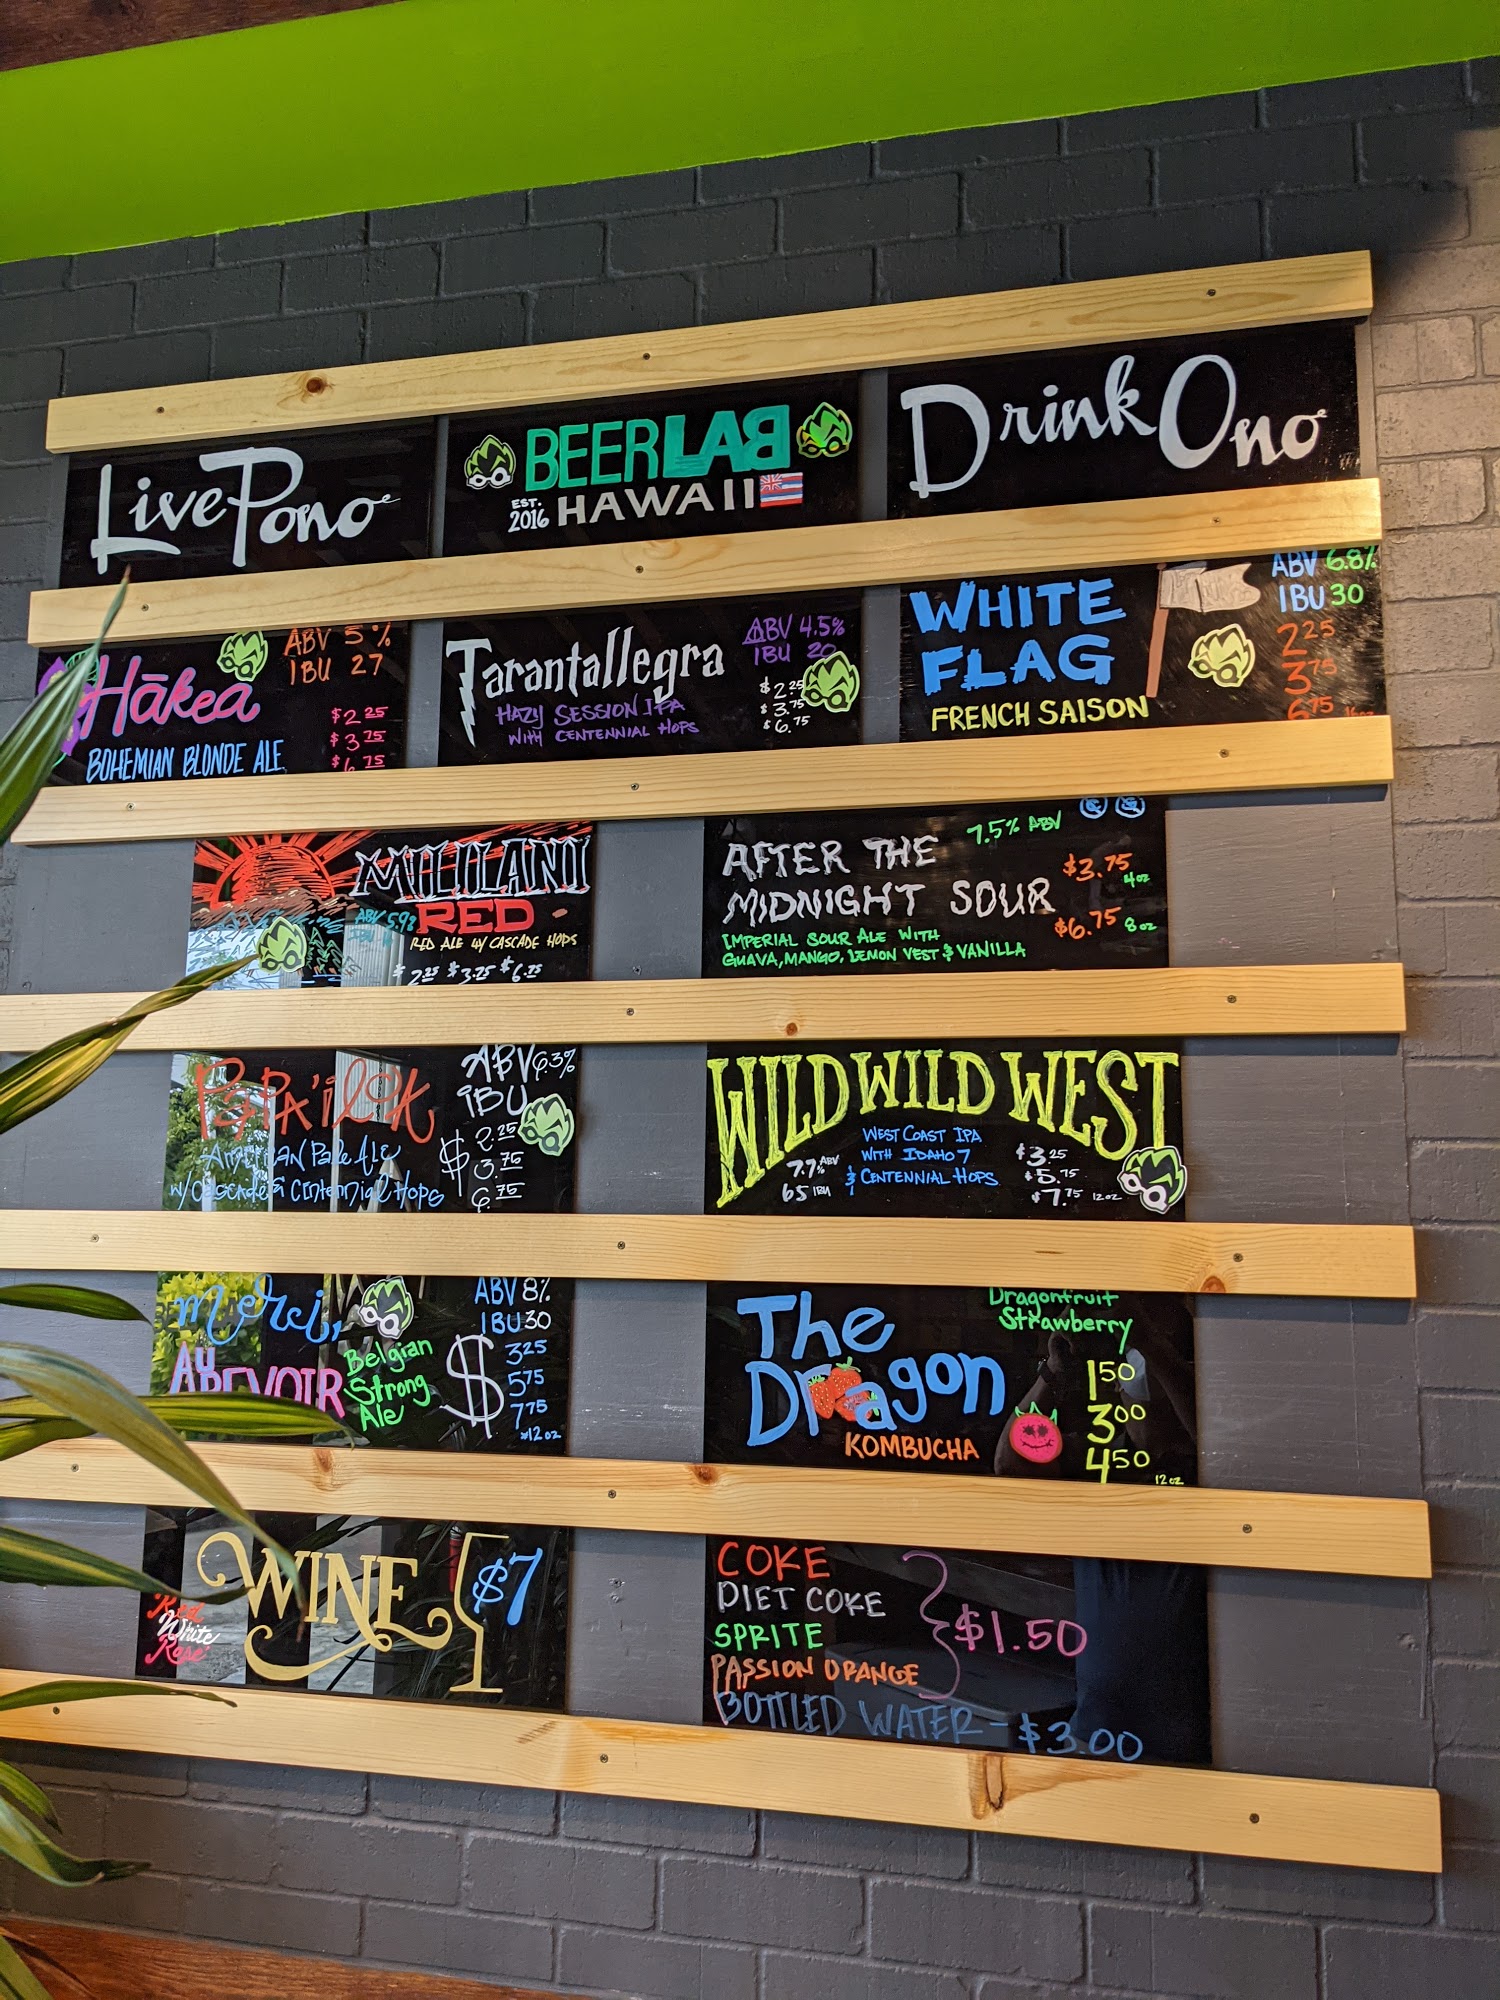 Live Pono
BEERLAB
EST. 2016 HAWAII
Drink Ono
Hākea
BOHEMIAN BLONDE ALE
ABV 5%
IBU 27
$2.25
$3.75
$6.75
Tarantallegra
HAZY SESSION IPA
WITH CENTENNIAL HOPS
ABV 4.5%
IBU 20
$2.25
$3.75
$6.75
WHITE
FLAG
FRENCH SAISON
ABV 6.8%
IBU 30
2.25
3.75
6.75
MILILANI
RED
ABV 5.9%
RED ALE W/ CASCADE HOPS
$2.25 $3.75 $6.75
AFTER THE
MIDNIGHT SOUR
IMPERIAL SOUR ALE WITH
GUAVA, MANGO, LEMON VEST & VANILLA
7.5% ABV
$3.75 4oz
$6.75 8oz
PAPA'ILOA
American Pale Ale
w/ Cascade & Centennial Hops
ABV 6.3%
IBU
$2.25
3.75
6.75
WILD WILD WEST
WEST COAST IPA
WITH IDAHO 7
& CENTENNIAL HOPS
7.7% ABV
65 IBU
$3.25
$5.75
$7.75 12oz
merci,
AU REVOIR
Belgian
Strong
Ale
ABV 8%
IBU 30
$3.25
5.75
7.75
12oz
The
Dragon
KOMBUCHA
Dragonfruit
Strawberry
1.50
3.00
4.50
12oz
WINE
Red
White
Rosé
$7
COKE
DIET COKE
SPRITE
PASSION ORANGE
$1.50
BOTTLED WATER - $3.00